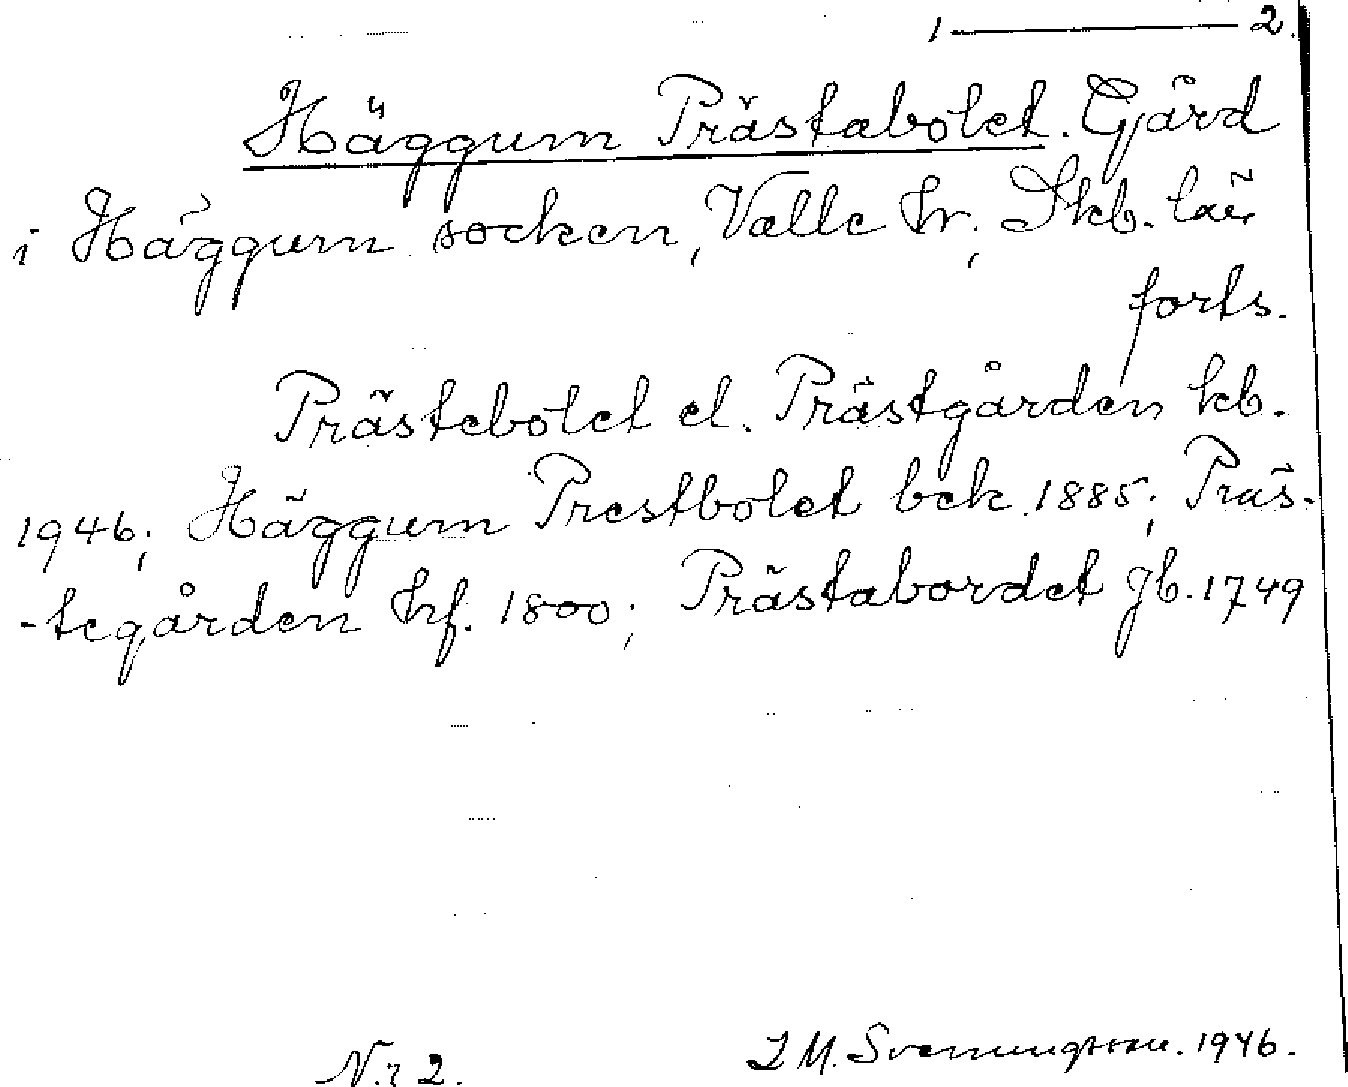 1 — 2.
Häggum Prästabolet. Gård
i Häggum socken, Valle hr; Skb. län
forts.
Prästebolet el. Prästgården kb.
1946; Häggum Prestbolet bek. 1885; Präs-
-tegården hf. 1800; Prästabordet jb. 1749
N:r 2. I M. Svenungsson. 1946.